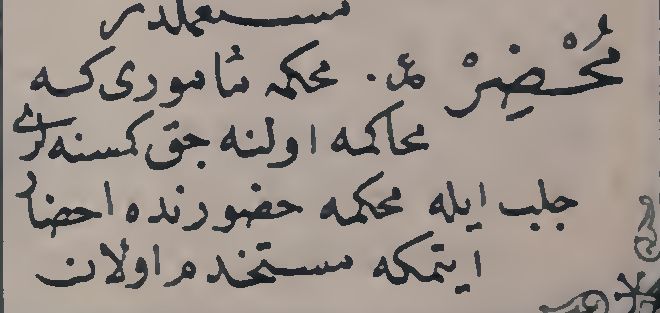 مستعملدر
مُحْضِرْ عر. محكمه مأمورى كه
محاكمه اولنه جق كمسنه لرى
جلب ايله محكمه حضورنده احضار
ايتمكه مستخدم اولان